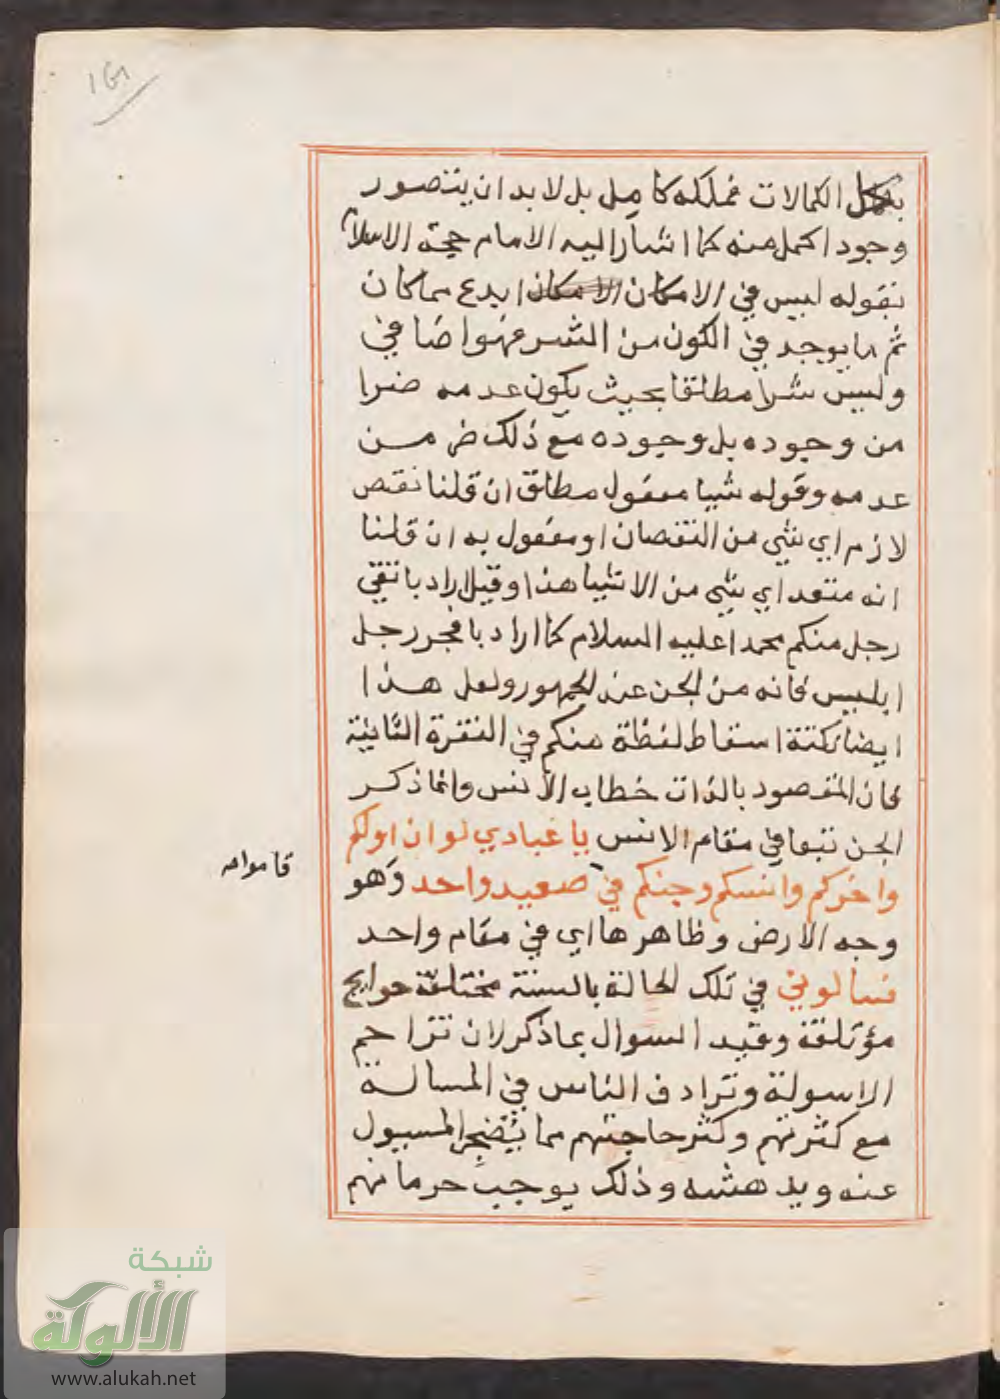 بكل الكمالات مملكه كامل بل لا بد ان يتصور
وجود اكمل منه كما اشار اليه الامام حجة الاسلام
بقوله ليس في الامكان الامكان ابدع مما كان
ثم ما يوجد في الكون من الشر فهو اضافي
وليس شرا مطلقا بحيث يكون عدمه خيرا
من وجوده بل وجوده مع ذلك خير من
عدمه وقوله شيا مفعول مطلق ان قلنا نقص
لازم اي شي من النقصان او مفعول به ان قلنا
انه متعد اي شي من الاشيا هذا وقيل اراد باتقي
رجل منكم محمدا عليه السلام كما اراد بافجر رجل
ابليس فانه من الجن عند الجمهور ولعل هذا
ايضا نكتة اسقاط لفظة منكم في الفقرة الثانية
فان المقصود بالذات خطاب الانس وانما ذكر
الجن تبعا في مقام الانس يا عبادي لو ان اولكم
واخركم وانسكم وجنكم في صعيد واحد وهو
قاموا
وجه الارض وظاهرها اي في مقام واحد
فسالوني في تلك الحالة بالسنة مختلفة حوايج
مؤتلفة وقيد السوال بما ذكر لان تزاحم
الاسولة وترادف الناس في المسالة
مع كثرتهم وكثر حاجتهم مما يضجر المسيول
عنه ويدهشه وذلك يوجب حرمانهم
شبكة
الألوكة
www.alukah.net